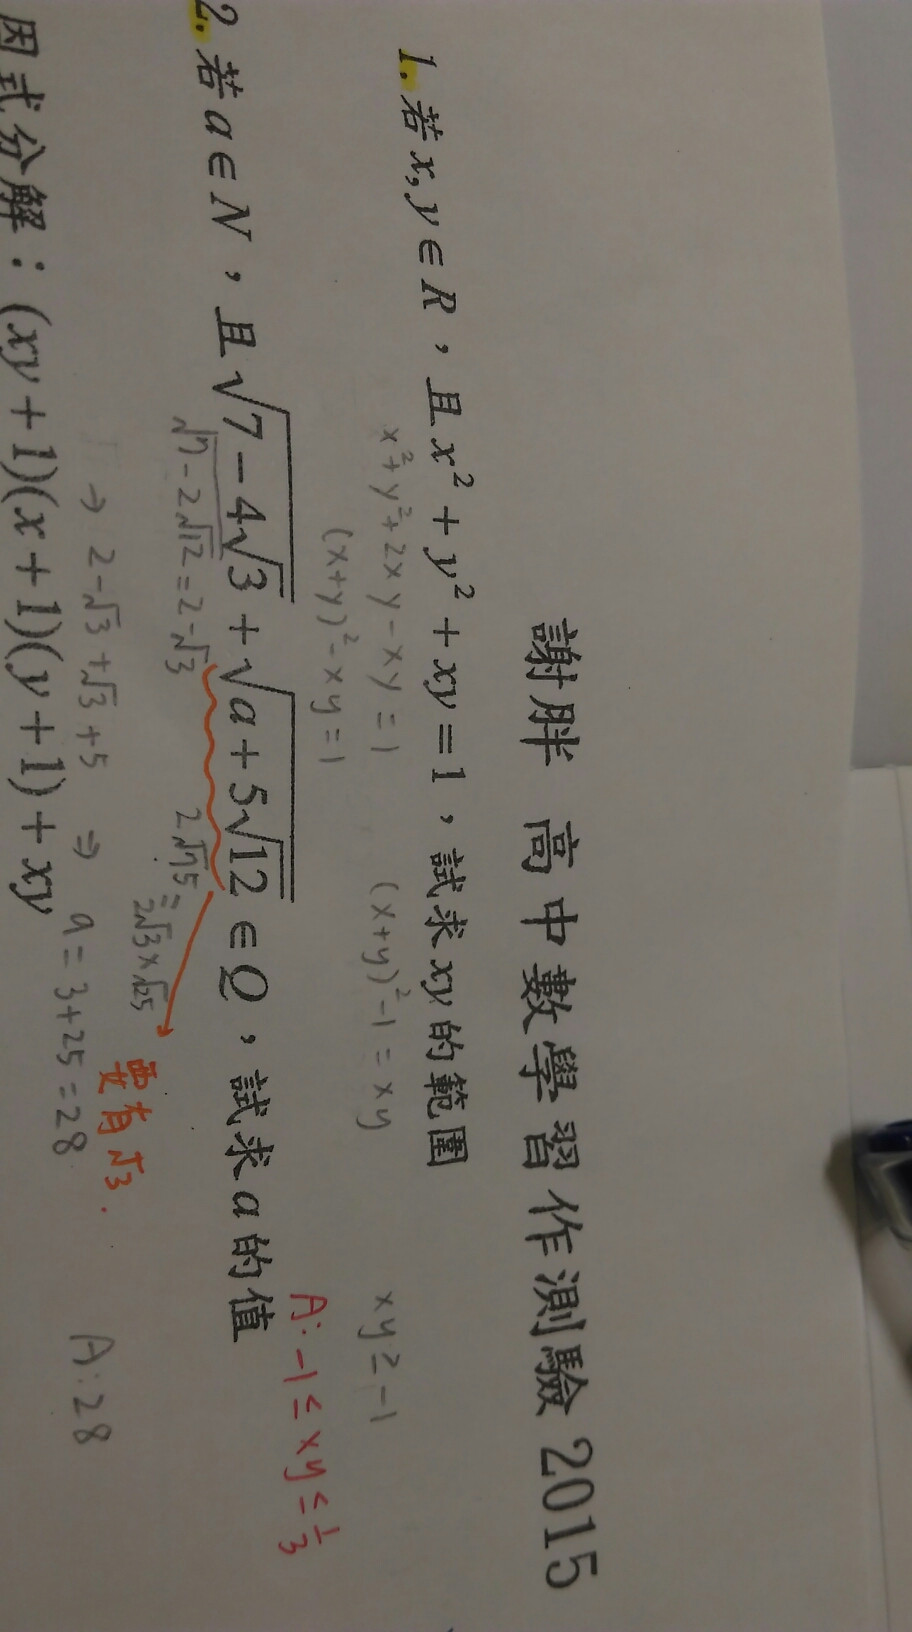 謝胖 高中數學習作測驗 2015
1. 若 x, y ∈ R，且 x² + y² + xy = 1，試求 xy 的範圍
x² + y² + 2xy - xy = 1
(x+y)² - 1 = xy
xy ≥ -1
(x+y)² - xy = 1
A: -1 ≤ xy ≤ 1/3
2. 若 a ∈ N，且 √(7 - 4√3) + √(a + 5√12) ∈ Q，試求 a 的值
√(7 - 2√12) = 2 - √3
2√75 = 2√3 × √25
要有 √3.
→ 2 - √3 + √3 + 5 ⇒ a = 3 + 25 = 28
A: 28
因式分解：(xy + 1)(x + 1)(y + 1) + xy